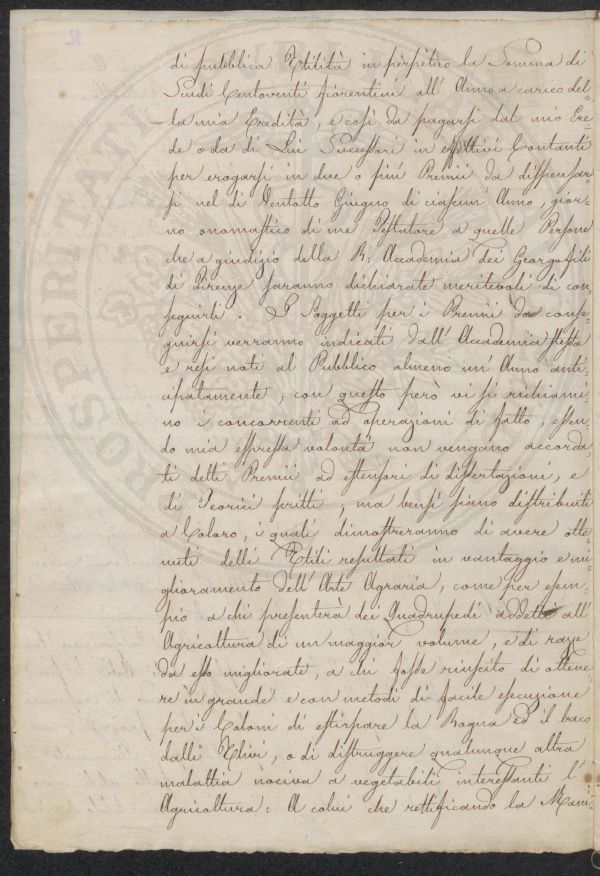 di pubblica Utilità in perpetuo la Somma di
Scudi Centoventi fiorentini all' Anno a carico del=
la mia Eredità, e così da pagarsi dal mio Ere=
de o da di Lui Successori in effettivi Contanti
per erogarsi in due o più Premii da dispensar=
si nel dì Ventotto Giugno di ciascun' Anno, gior=
no onomastico di me Testatore a quelle Persone
che a giudizio della R: Accademia dei Georgofili
di Firenze saranno dichiarate meritevoli di con=
seguirli. I Soggetti per i Premii da conse=
guirsi verranno indicati dall' Accademia stessa
e resi noti al Pubblico almeno un' Anno anti=
cipatamente, con questo però vi si richiami=
no i concorrenti ad operazioni di fatto, essen=
do mia espressa volontà non vengano accorda=
ti detti Premii ad estensori di dissertazioni, e
di Teorici scritti, ma bensì siano distribuiti
a Coloro, i quali dimostreranno di avere otte=
nuti delli Utili resultati in vantaggio e mi=
glioramento dell' Arte Agraria, come per esem=
pio a chi presenterà dei Quadrupedi addetti all'
Agricoltura di un maggior volume, e di razze
da esso migliorate, a chi fosse riuscito di ottene=
re in grande e con metodi di facile esecuzione
per i Coloni di estirpare la Rogna ed il baco
dalli Ulivi, o di distruggere qualunque altra
malattia nociva a vegetabili interessanti l'
Agricoltura: A colui che rettificando la Mani=
PROSPERITATI